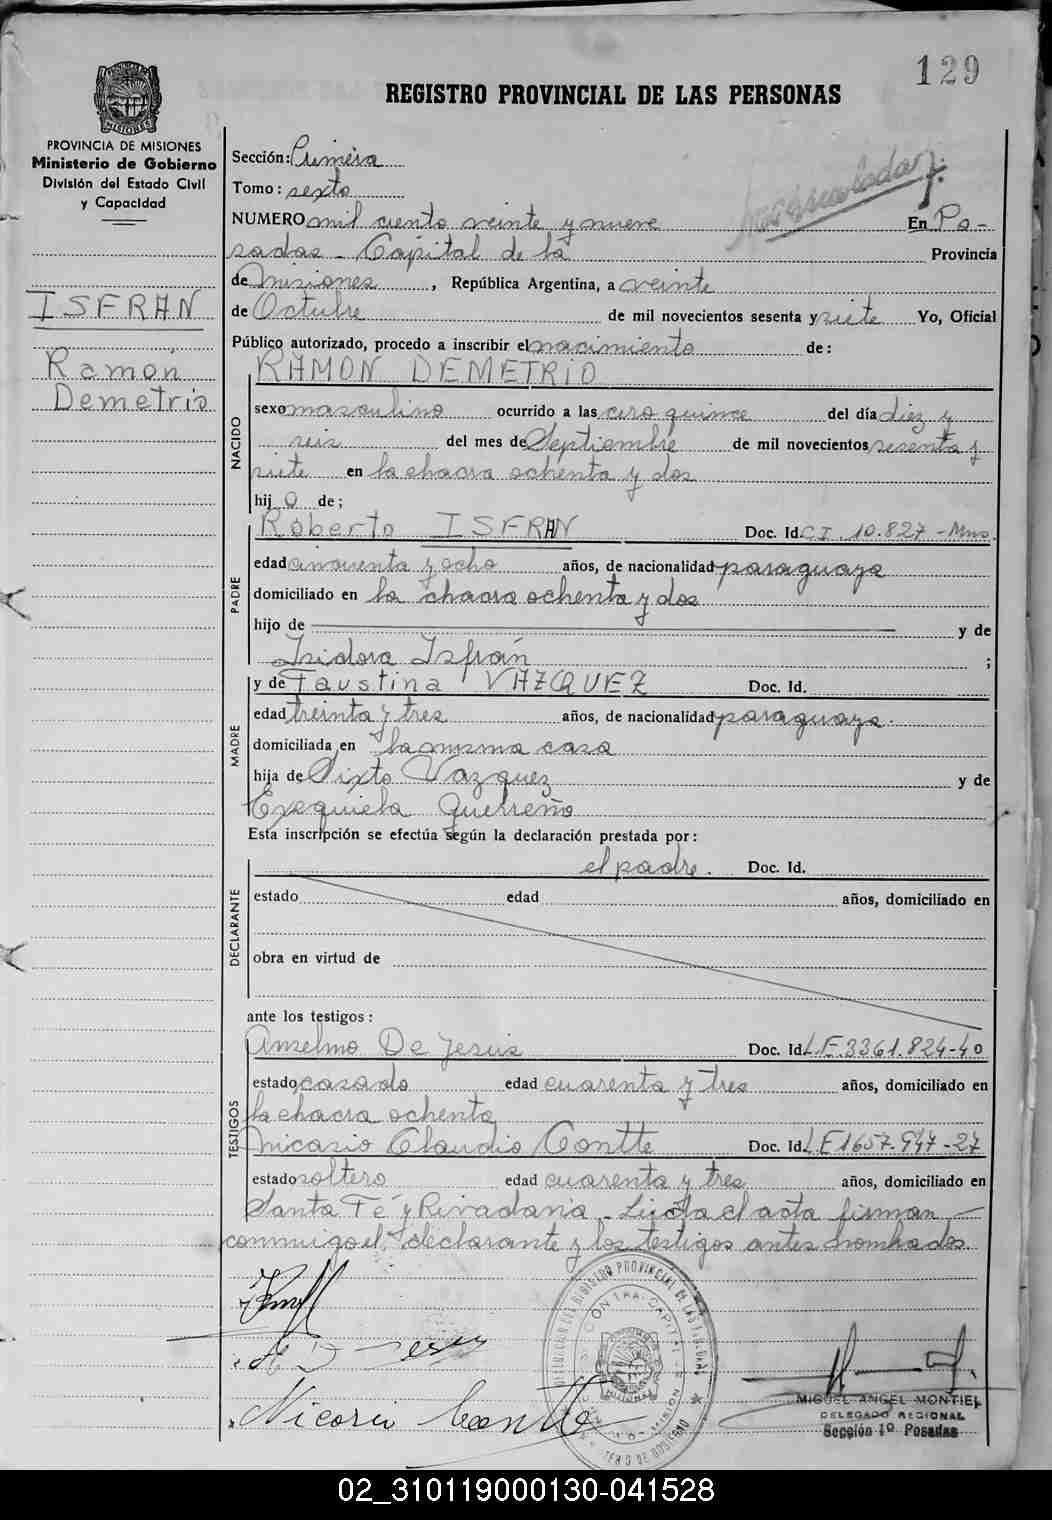 129
REGISTRO PROVINCIAL DE LAS PERSONAS
PROVINCIA DE MISIONES
Ministerio de Gobierno
División del Estado Civil
y Capacidad
ISFRAN
Ramón
Demetrio
Sección: Primera
Tomo: sexto
NUMERO mil ciento veinte y nueve En Po-
sadas - Capital de la Provincia
de Misiones, República Argentina, a veinte
de Octubre de mil novecientos sesenta y siete Yo, Oficial
Público autorizado, procedo a inscribir el nacimiento de:
RAMON DEMETRIO
NACIDO
sexo masculino ocurrido a las cero quince del día diez y
seis del mes de Septiembre de mil novecientos sesenta y
siete en la chacra ochenta y dos
hijo de;
Roberto ISFRAN Doc. Id. C.I. 10.827 - Mnes.
PADRE
edad cincuenta y ocho años, de nacionalidad paraguaya
domiciliado en la chacra ochenta y dos
hijo de y de
Isidora Isfrán ;
y de Faustina VAZQUEZ Doc. Id.
MADRE
edad treinta y tres años, de nacionalidad paraguaya.
domiciliada en la misma casa
hija de Sixto Vazquez y de
Exequiela Guerreño
Esta inscripción se efectúa según la declaración prestada por:
el padre. Doc. Id.
DECLARANTE
estado edad años, domiciliado en
obra en virtud de
ante los testigos:
Anselmo De Jesus Doc. Id. L.E. 3361.824-40
TESTIGOS
estado casado edad cuarenta y tres años, domiciliado en
la chacra ochenta
Nicasio Claudio Contte Doc. Id. L.E 1657.947-27
estado soltero edad cuarenta y tres años, domiciliado en
Santa Fé y Rivadavia - Leída el acta firman
conmigo el declarante y los testigos antes nombrados.
MIGUEL ANGEL MONTIEL
DELEGADO REGIONAL
Sección 1º Posadas
02_310119000130-041528